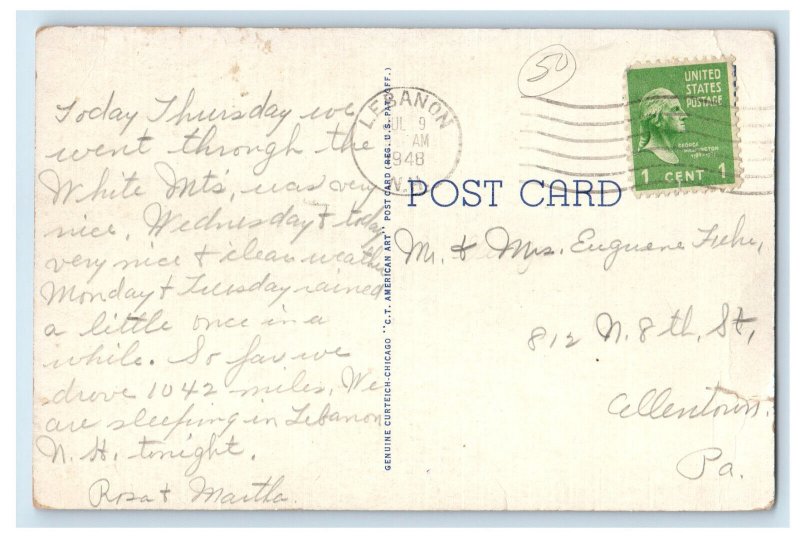 Today Thursday we
went through the
White Mts', was very
nice. Wednesday & today
very nice & clear weather
Monday & Tuesday rained
a little once in a
while. So far we
drove 1042 miles. We
are sleeping in Lebanon
N. H. tonight.
Rosa & Martha.
GENUINE CURTEICH-CHICAGO "C.T. AMERICAN ART" POST CARD (REG. U.S. PAT. OFF.)
LEBANON
JUL 9
AM
1948
N.H.
50
UNITED
STATES
POSTAGE
GEORGE
WASHINGTON
1 CENT 1
POST CARD
Mr. & Mrs. Euguene
812 N. 8th, St,
Allentown,
Pa.